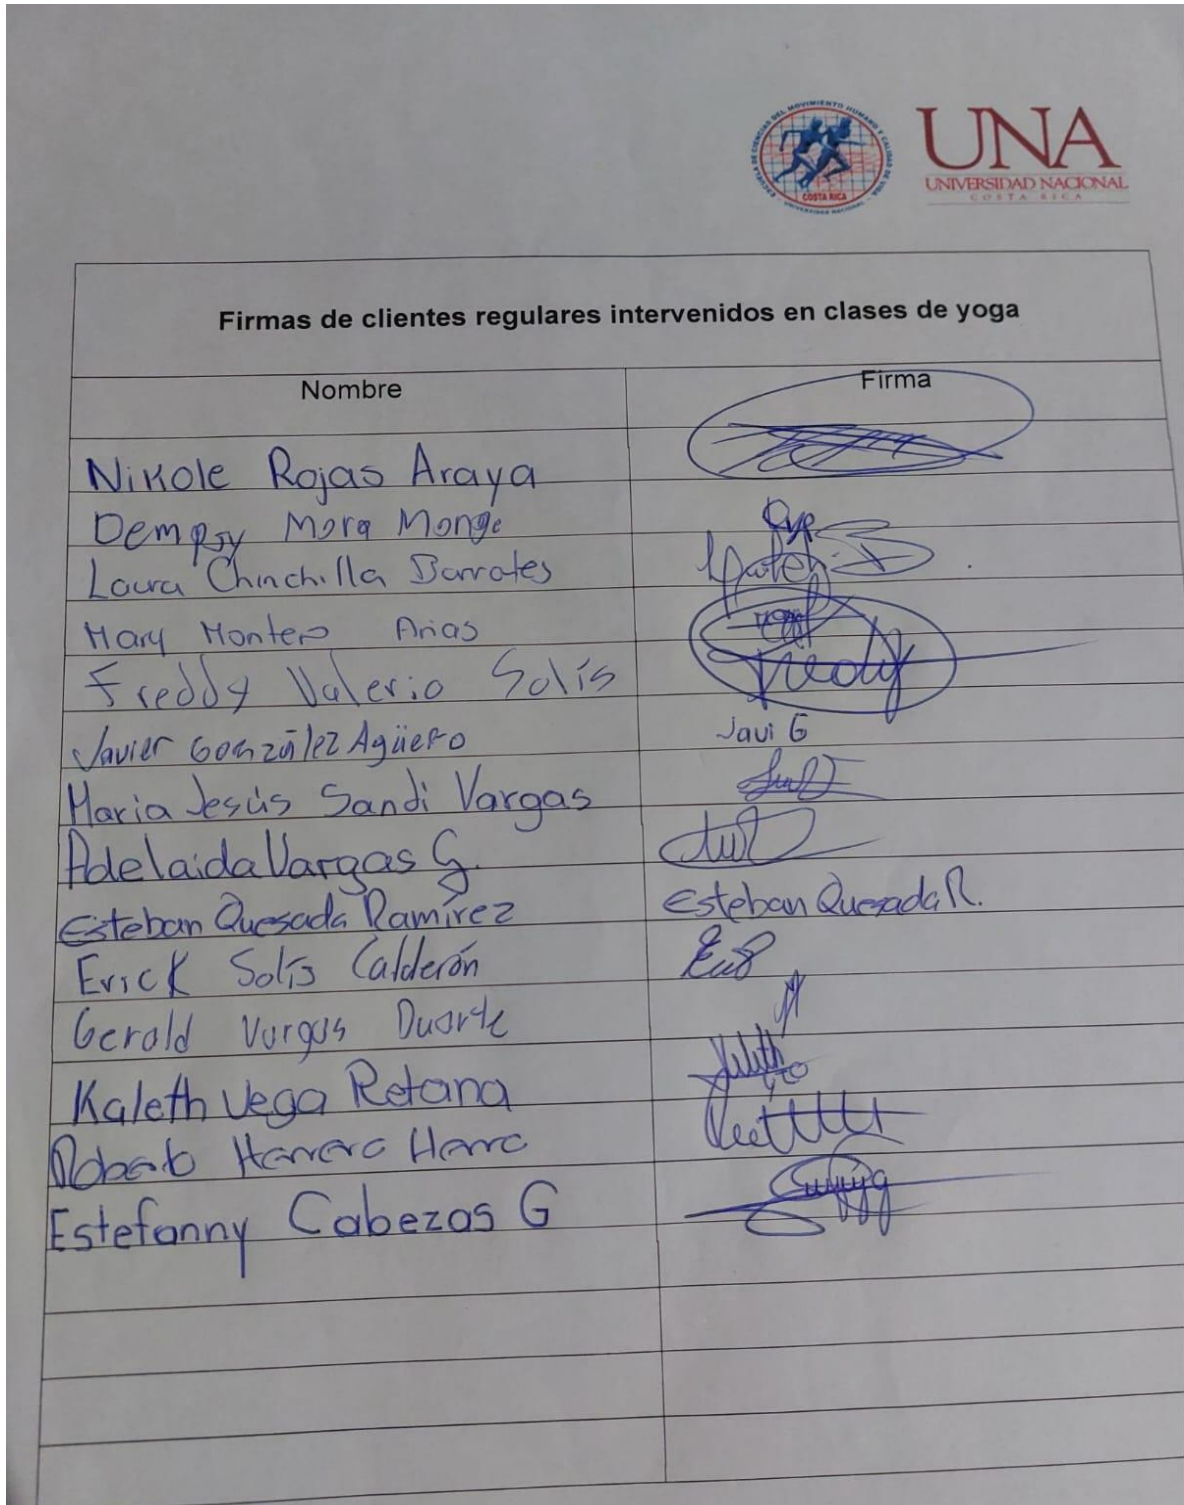 ESCUELA DE CIENCIAS DEL MOVIMIENTO HUMANO Y CALIDAD DE VIDA
COSTA RICA
UNIVERSIDAD NACIONAL
UNA
UNIVERSIDAD NACIONAL
COSTA RICA
Firmas de clientes regulares intervenidos en clases de yoga
Nombre Firma
Nikole Rojas Araya
Dempsy Mora Monge
Laura Chinchilla Barrates
Mary Montero Arias
Freddy Valerio Solís Freddy
Javier González Agüero Javi G
Maria Jesús Sandi Vargas
Adelaida Vargas G.
Esteban Quesada Ramírez Esteban Quesada R.
Erick Solís Calderón
Gerald Vargas Duarte
Kaleth Vega Retana
Roberto Herrera
Estefanny Cabezas G